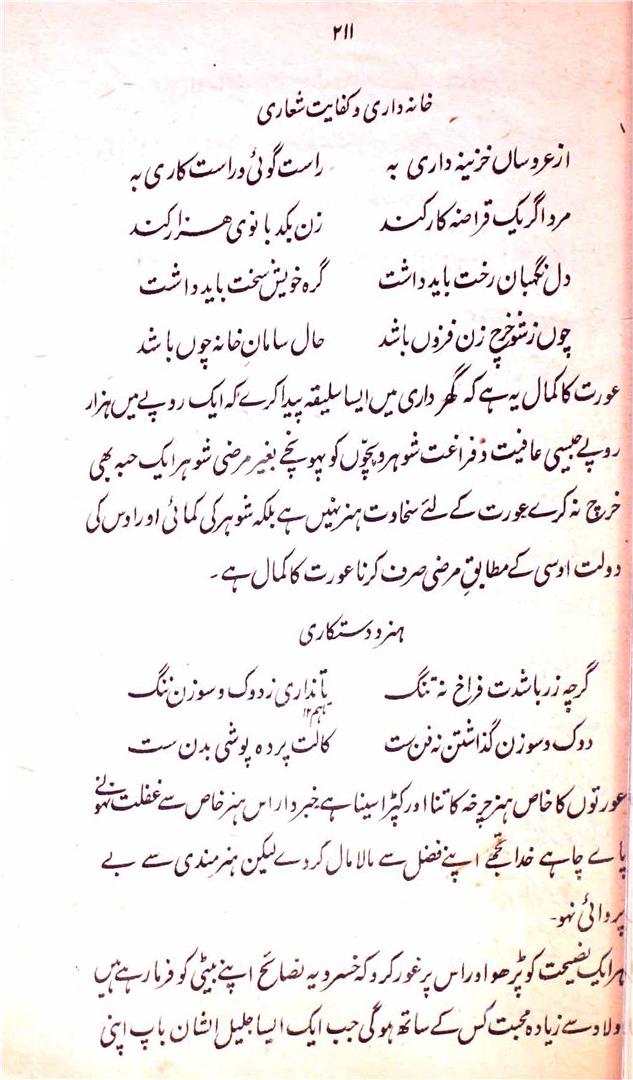 ۲۱۱
خانہ داری و کفایت شعاری
از عروساں خزینہ داری بہ راست گوئی و راست کاری بہ
مرد اگر یک قراضہ کار کند زن بکد بانوی هزار کند
دل نگہبان رخت باید داشت گرہ خویش سخت باید داشت
چوں ز شو خرچ زن فزوں باشد حال سامانِ خانہ چوں باشد
عورت کا کمال یہ ہے کہ گھر داری میں ایسا سلیقہ پیدا کرے کہ ایک روپے میں ہزار
روپے جیسی عافیت و فراغت شوہر و بچّوں کو پہونچے بغیر مرضی شوہر ایک حبہ بھی
خرچ نہ کرے عورت کے لئے سخاوت ہنر نہیں ہے بلکہ شوہر کی کمائی اور اوس کی
دولت اوسی کے مطابقِ مرضی صرف کرنا عورت کا کمال ہے۔
ہنر و دستکاری
گرچہ زر باشدت فراخ نہ تنگ تا نداری ز دوک و سوزن ننگ
تاہم ۱۲
دوک و سوزن گذاشتن نہ فن ست کالت پردہ پوشی بدن ست
عورتوں کا خاص ہنر چرخہ کاتنا اور کپڑا سینا ہے خبردار اس ہنر خاص سے غفلت نہونے
پاے چاہے خدا تجھے اپنے فضل سے مالا مال کردے لیکن ہنرمندی سے بے
پروائی نہو۔
ہر ایک نصیحت کو پڑھو اور اس پر غور کرو کہ خسرو یہ نصائح اپنے بیٹی کو فرما رہے ہیں
ولاد سے زیادہ محبت کس کے ساتھ ہوگی جب ایک ایسا جلیل الشان باپ اپنی